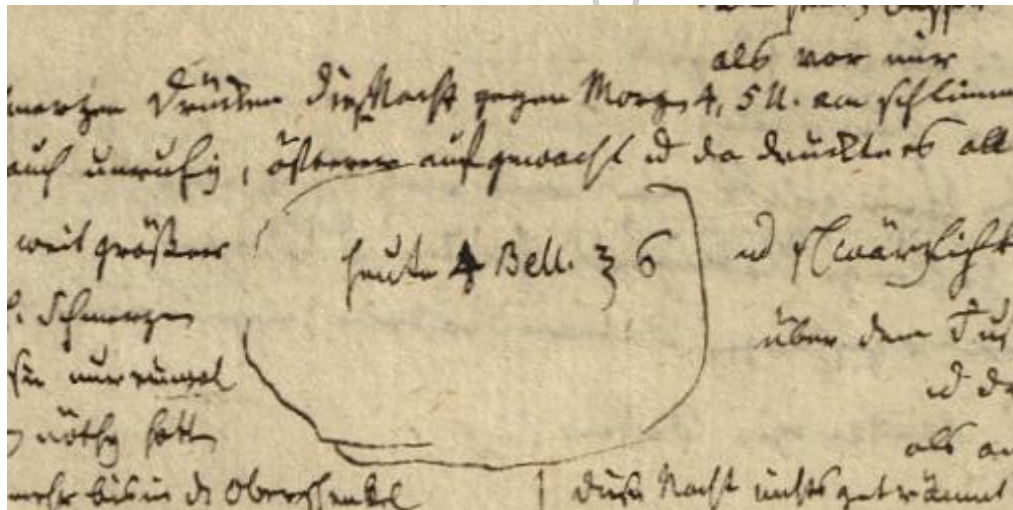 als vor mir
Drücken die Nacht gegen Morg. 4, 5 U. am schlimm
auch unruhig, öfterer aufgewacht ud da druckte es all
weit größer
heute 4 Bell. 3 6
ud schwärzlicht
Schmerzen
über dem
nur einmal
ud
nöthig hatte
als
mehr bis in d. Oberschenkel
diese Nacht nichts geträumt